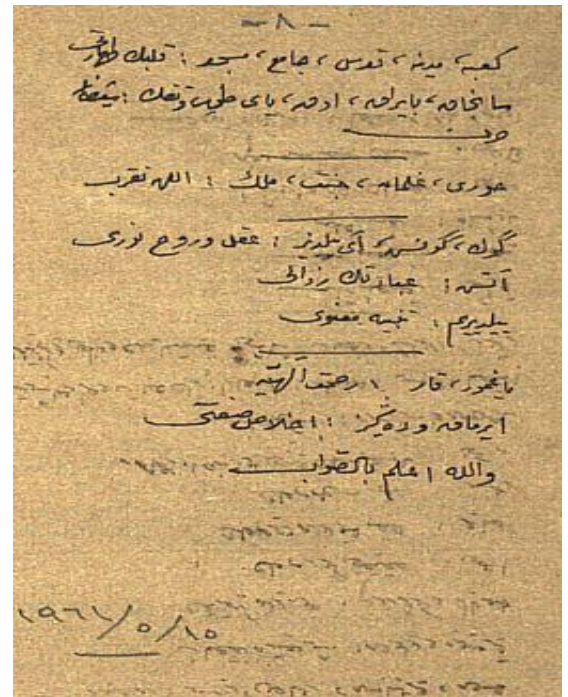 - ٨ -
كعبه، مدينه، قدس، جامع، مسجد : قلبك طهارتى
سانجاق، بايراق، اوق، ياى
حورى، غلمان، جنت، ملك : اللهه تقرب
كوك، كونش، آى ييلديز : عقل وروح نورى
آتش : عبادتك زوالى
ييلديريم : تنبيه معنوى
ياغمور، قار : رحمت الهيه
ايرماق ودكز : اخلاص صنعتى
والله اعلم بالصواب
١٩٦١/٥/١٥